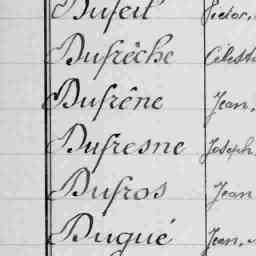 Dufeil Victor,
Dufrêche Célest
Dufrêne Jean,
Dufresne Joseph
Dufros Jean
Dugué Jean,